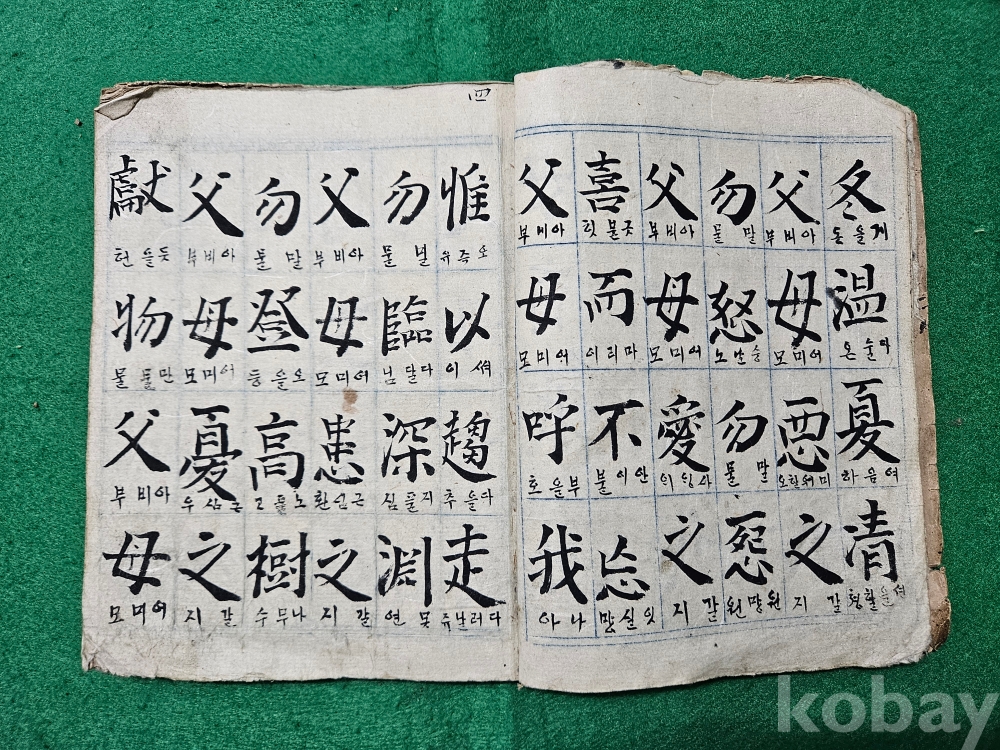 冬 게을동 溫 다술온 夏 여음하 凊
父 아비부 母 어미모 惡 미워할오 之 갈지
勿 말물 怒 승난노 勿 말물 怨 원망원
父 아비부 母 어미모 愛 之 갈지
喜 而 마리이 不 안이불 忘 잇실망
父 아비부 母 어미모 呼 부을호 我 나아
四
惟 오즉유 以 써이 趨 다을추 走 다러난쥬
勿 물 臨 다달님 深 지풀심 淵 못연
父 아비부 母 어미모 患 근심환 之 갈지
勿 말물 登 오을등 高 노풀고 樹 나무수
父 아비부 母 어미모 憂 근심우 之 갈지
獻 듯을헌 物 만물물 父 아비부 母 어미모
kobay